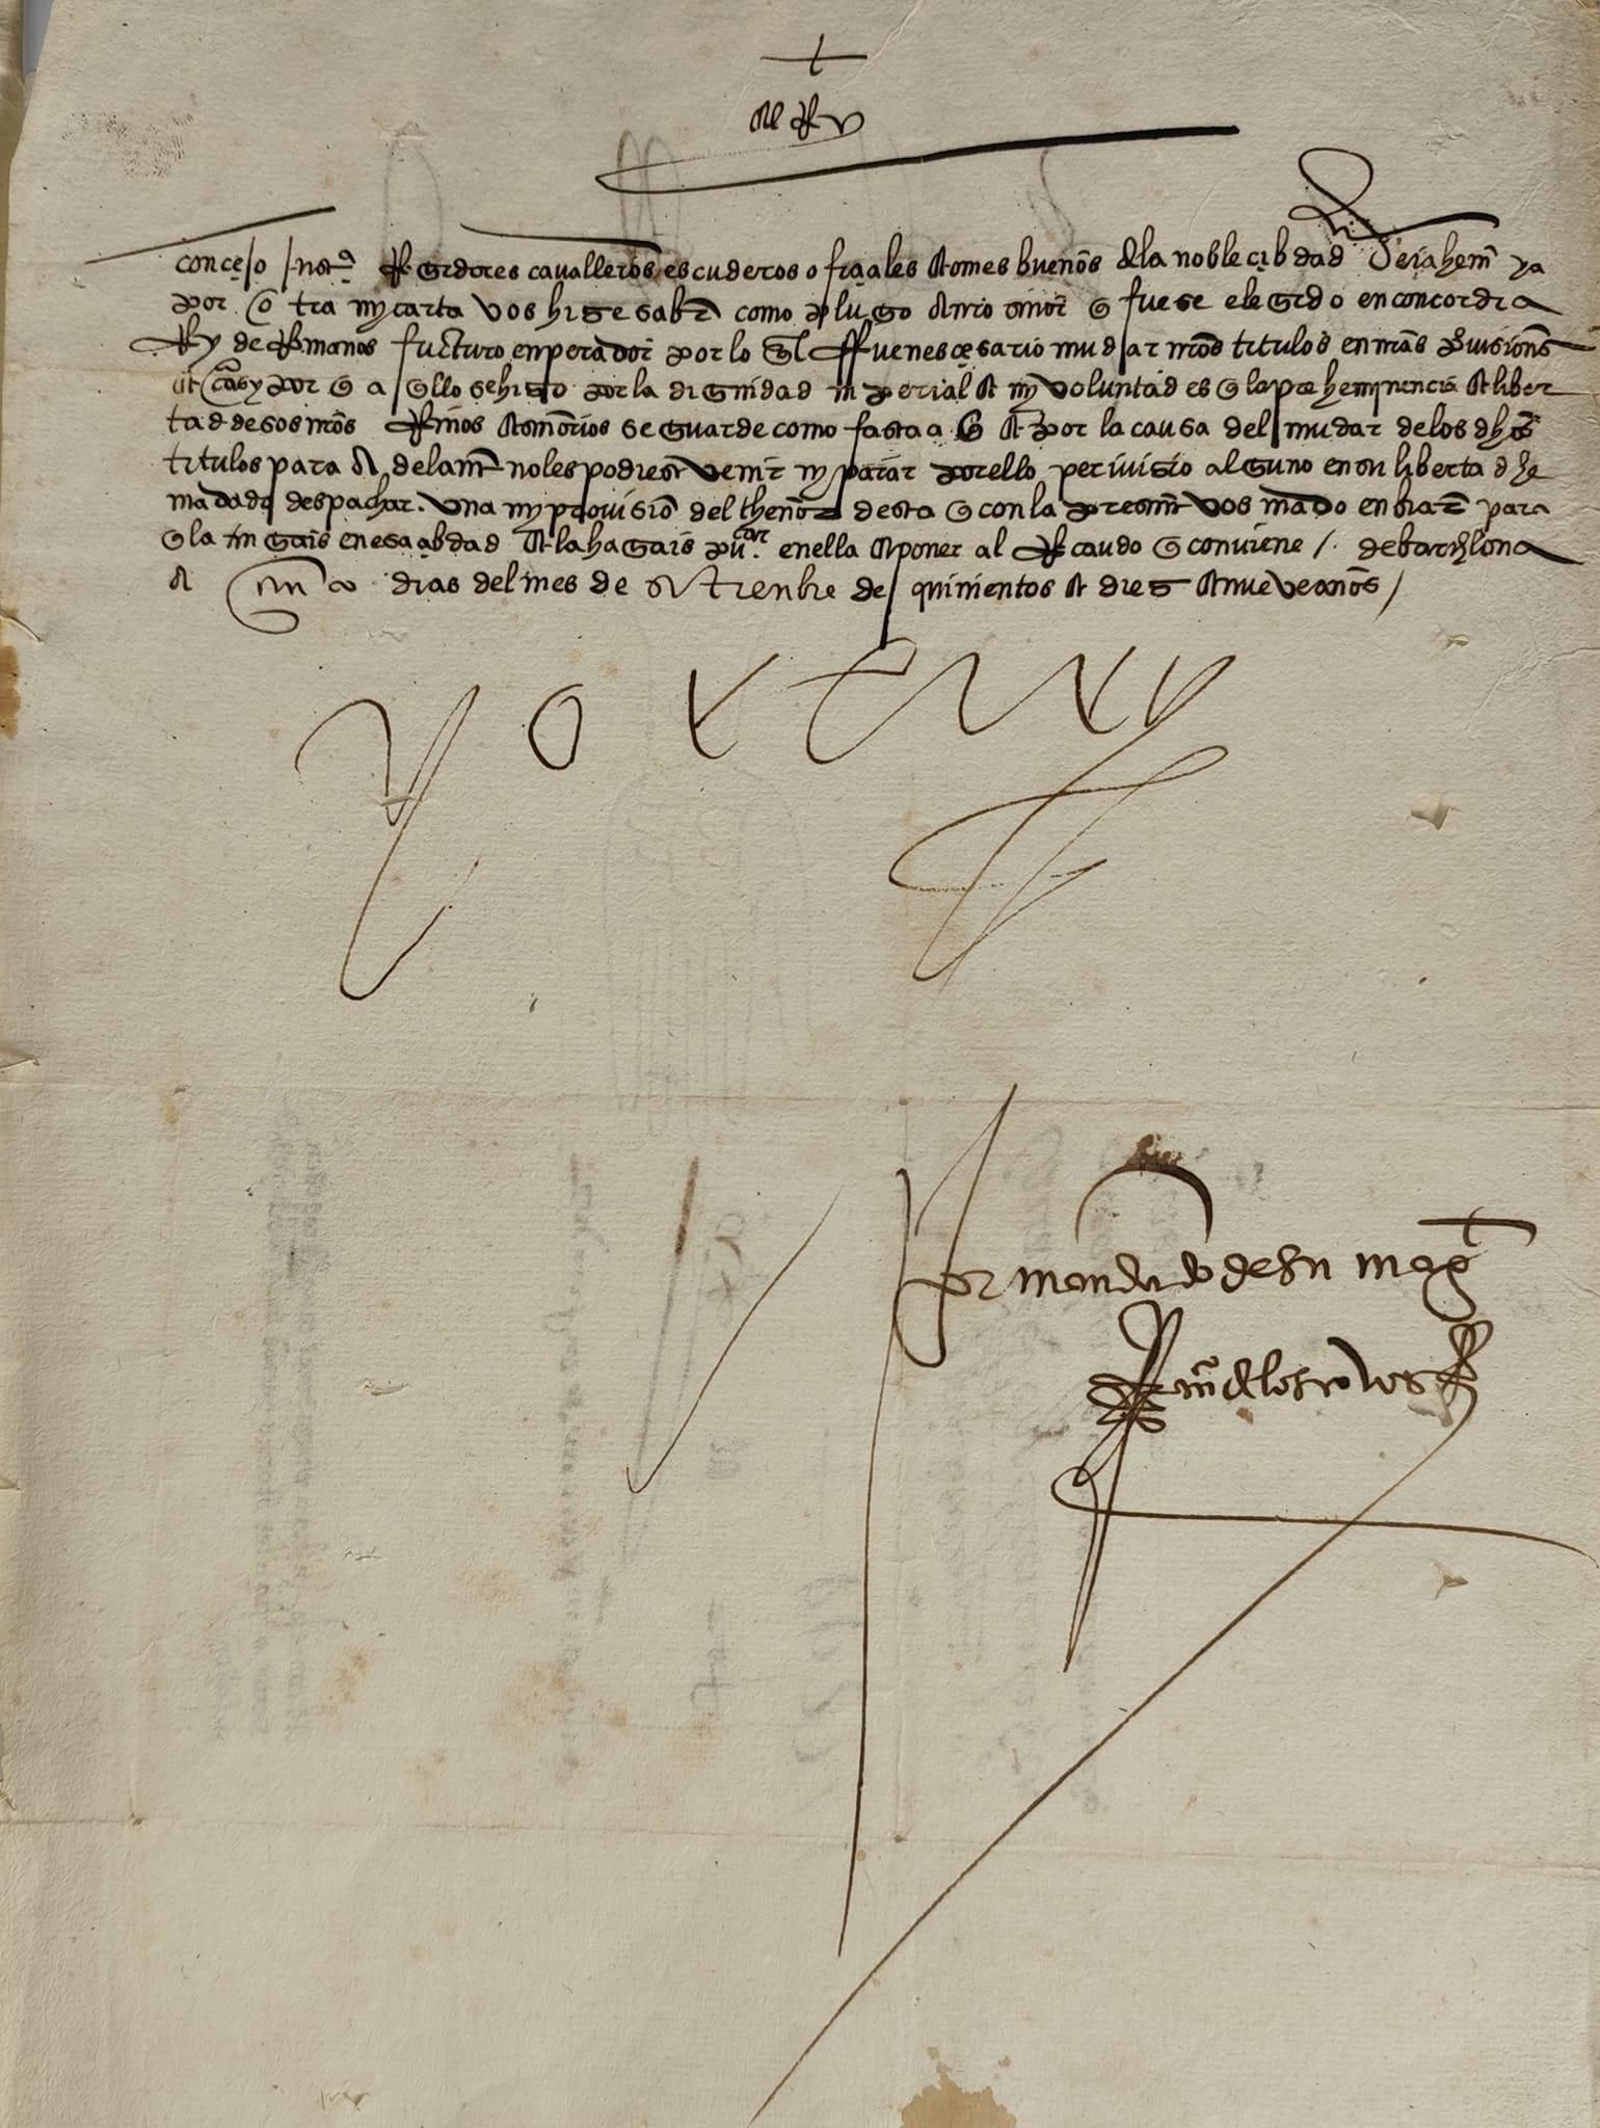 +
el Rey
concejo just.ª Regidores cavalleros escuderos ofiçiales e omes buenos de la noble çibdad ya
por otra my carta vos hize saber como plugo a nro señor q fuese elegido en concordia
Rey de Romanos futuro enperador por lo ql fue nesçesario mudar nros titulos en nras provisiones
y por q aqllo se hizo por la dignidad inperial e my voluntad es q la preheminencia e liber
tad desos nros Reinos e señorios se guarde como fasta aq e por la causa del mudar de los dhos
titulos para adelante no les podiese venir ny parar por ello perjuizio alguno en su libertad he
mādado despachar una my provisiō del thenor desta q con la presente vos mādo enbiar para
q la tengais en esa çibdad e la hagais pu.car en ella e poner al Recaudo q conviene /. de barçelona
a dias del mes de setienbre de quinientos e diez e nueve años /
yo el Rey
por mandado de su magt
de los covos